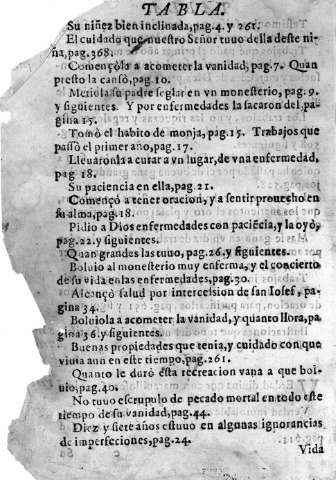 TABLA.
Su niñez bien inclinada, pag.4. y 261.
El cuidado que nuestro Señor tuuo della desde ni-
ña, pag.368.
Començola a acometer la vanidad, pag.7. Quan
presto la cansó, pag.10.
Metiola su padre seglar en vn monesterio, pag. 9.
y siguientes. Y por enfermedades la sacaron del, pa-
gina 15.
Tomó el habito de monja, pag.15. Trabajos que
passó el primer año, pag.17.
Lleuaronla a curar a vn lugar, de vna enfermedad,
pag 18.
Su paciencia en ella, pag.21.
Començò a tener oracion, y a sentir prouecho en
su alma, pag.18.
Pidio a Dios enfermedades con paciẽcia, y la oyó,
pag.22.y siguientes.
Quan grandes las tuuo, pag.26.y siguientes.
Boluio al monesterio muy enferma, y el concierto
de su vida en las enfermedades, pag.30.
Alcançò salud por intercession de san Iosef, pa-
gina 34.
Boluiola a acometer la vanidad, y quanto llora, pa-
gina 36.y siguientes.
Buenas propiedades que tenia, y cuidado con que
viuia aun en este tiempo, pag.261.
Quanto le duró esta recreacion vana a que bol-
uio, pag.40.
No tuuo escrupulo de pecado mortal en todo este
tiempo de su vanidad, pag.44.
Diez y siete años estuuo en algunas ignorancias
de imperfeciones, pag.24.
Vida